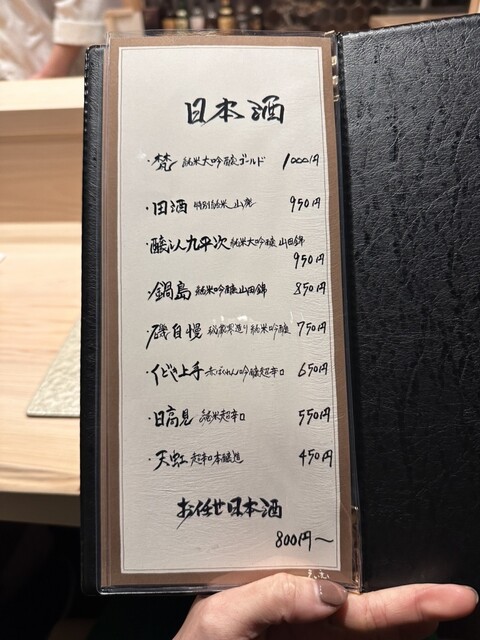 日本酒
・梵 純米大吟醸ゴールド 1000円
・田酒 特別純米 山廃 950円
・醸し人九平次 純米大吟醸 山田錦
950円
・鍋島 純米吟醸 山田錦 850円
・磯自慢 秘蔵寒造り 純米吟醸 750円
・くどき上手 赤ばくれん 吟醸超辛口 650円
・日高見 純米超辛口 550円
・天虹 超辛口本醸造 450円
お任せ日本酒
800円〜